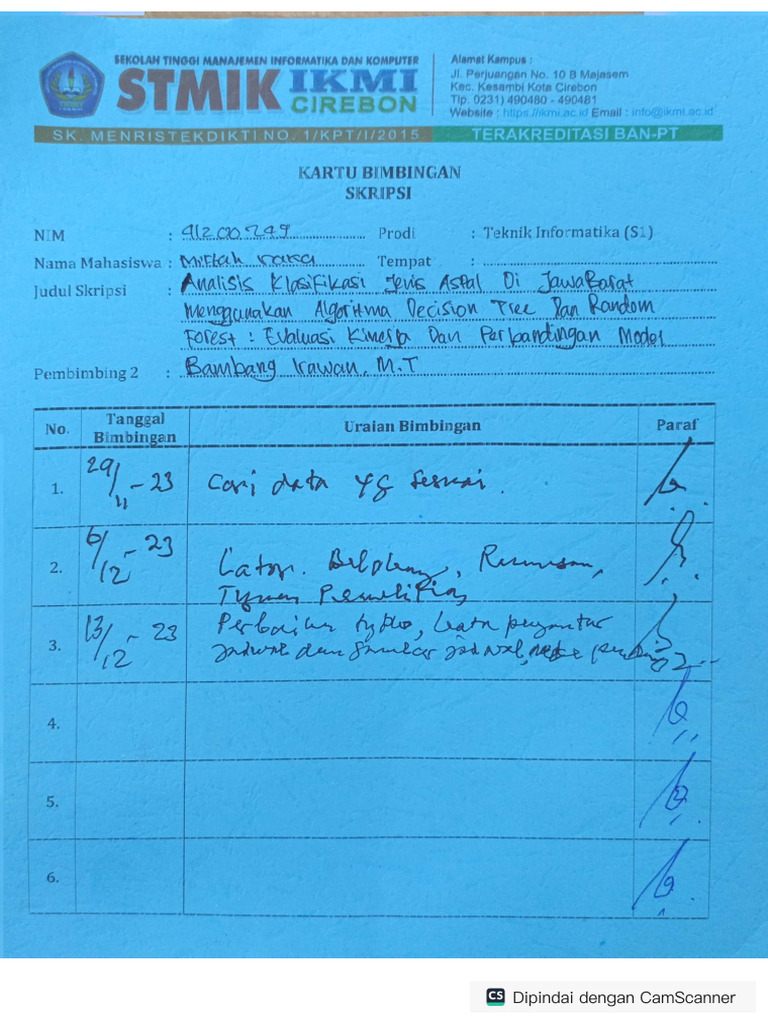 SEKOLAH TINGGI MANAJEMEN INFORMATIKA DAN KOMPUTER
STMIK IKMI
CIREBON
Alamat Kampus :
Jl. Perjuangan No. 10 B Majasem
Kec. Kesambi Kota Cirebon
Tlp. 0231) 490480 - 490481
Website : https://ikmi.ac.id Email : info@ikmi.ac.id
SK. MENRISTEKDIKTI NO. 1/KPT/I/2015 TERAKREDITASI BAN-PT
KARTU BIMBINGAN
SKRIPSI
NIM : 41200749 Prodi : Teknik Informatika (S1)
Nama Mahasiswa : Miftah Tempat :
Judul Skripsi : Analisis Klasifikasi Jenis Aspal Di Jawa Barat
Menggunakan Algoritma Decision Tree Dan Random
Forest : Evaluasi Kinerja Dan Perbandingan Model
Pembimbing 2 : Bambang Irawan, M.T
No. Tanggal Bimbingan Uraian Bimbingan Paraf
1. 29/11 - 23 Cari data yg sesuai.
2. 6/12 - 23 Latar. Belakang, Rumusan,
Tujuan Penelitian
3. 13/12 - 23 Perbaikan typo, kata pengantar
dan gambar
4.
5.
6.
CS Dipindai dengan CamScanner